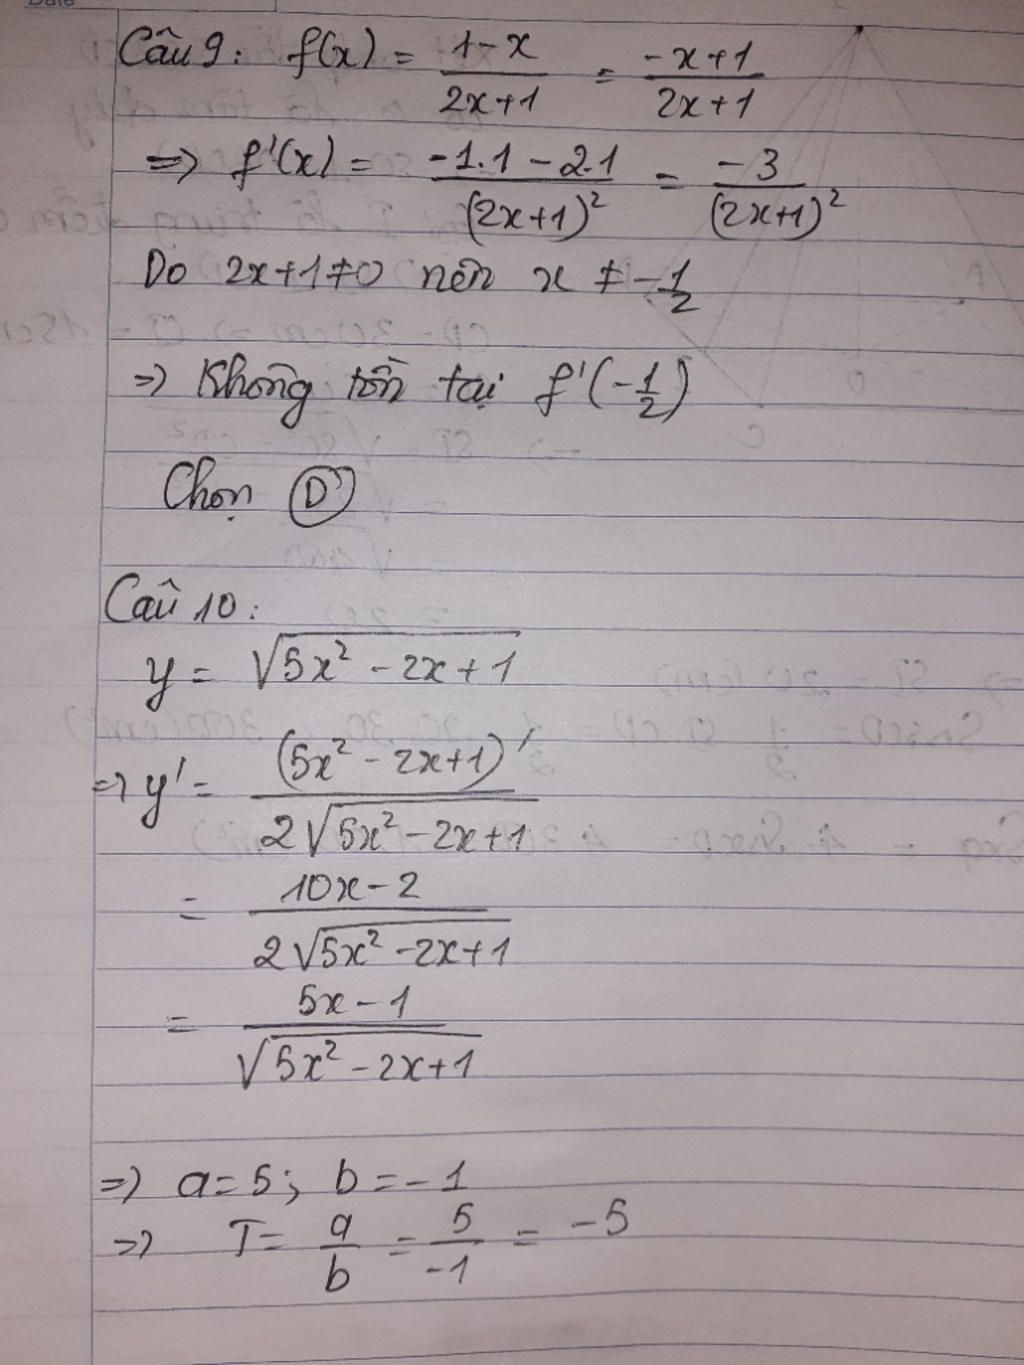 Câu 9: f(x) = 1-x / 2x+1 = -x+1 / 2x+1
=> f'(x) = -1.1 - 2.1 / (2x+1)² = -3 / (2x+1)²
Do 2x+1≠0 nên x ≠ -1/2
=> Không tồn tại f'(-1/2)
Chọn D
Câu 10:
y = √(5x² - 2x + 1)
=> y' = (5x² - 2x+1)' / 2√(5x² - 2x+1)
= 10x - 2 / 2√(5x² - 2x+1)
= 5x - 1 / √(5x² - 2x+1)
=> a = 5; b = -1
=> T = a/b = 5/-1 = -5